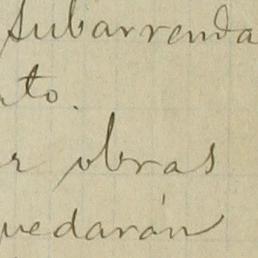 subarrenda
nto.
r obras
uedarán